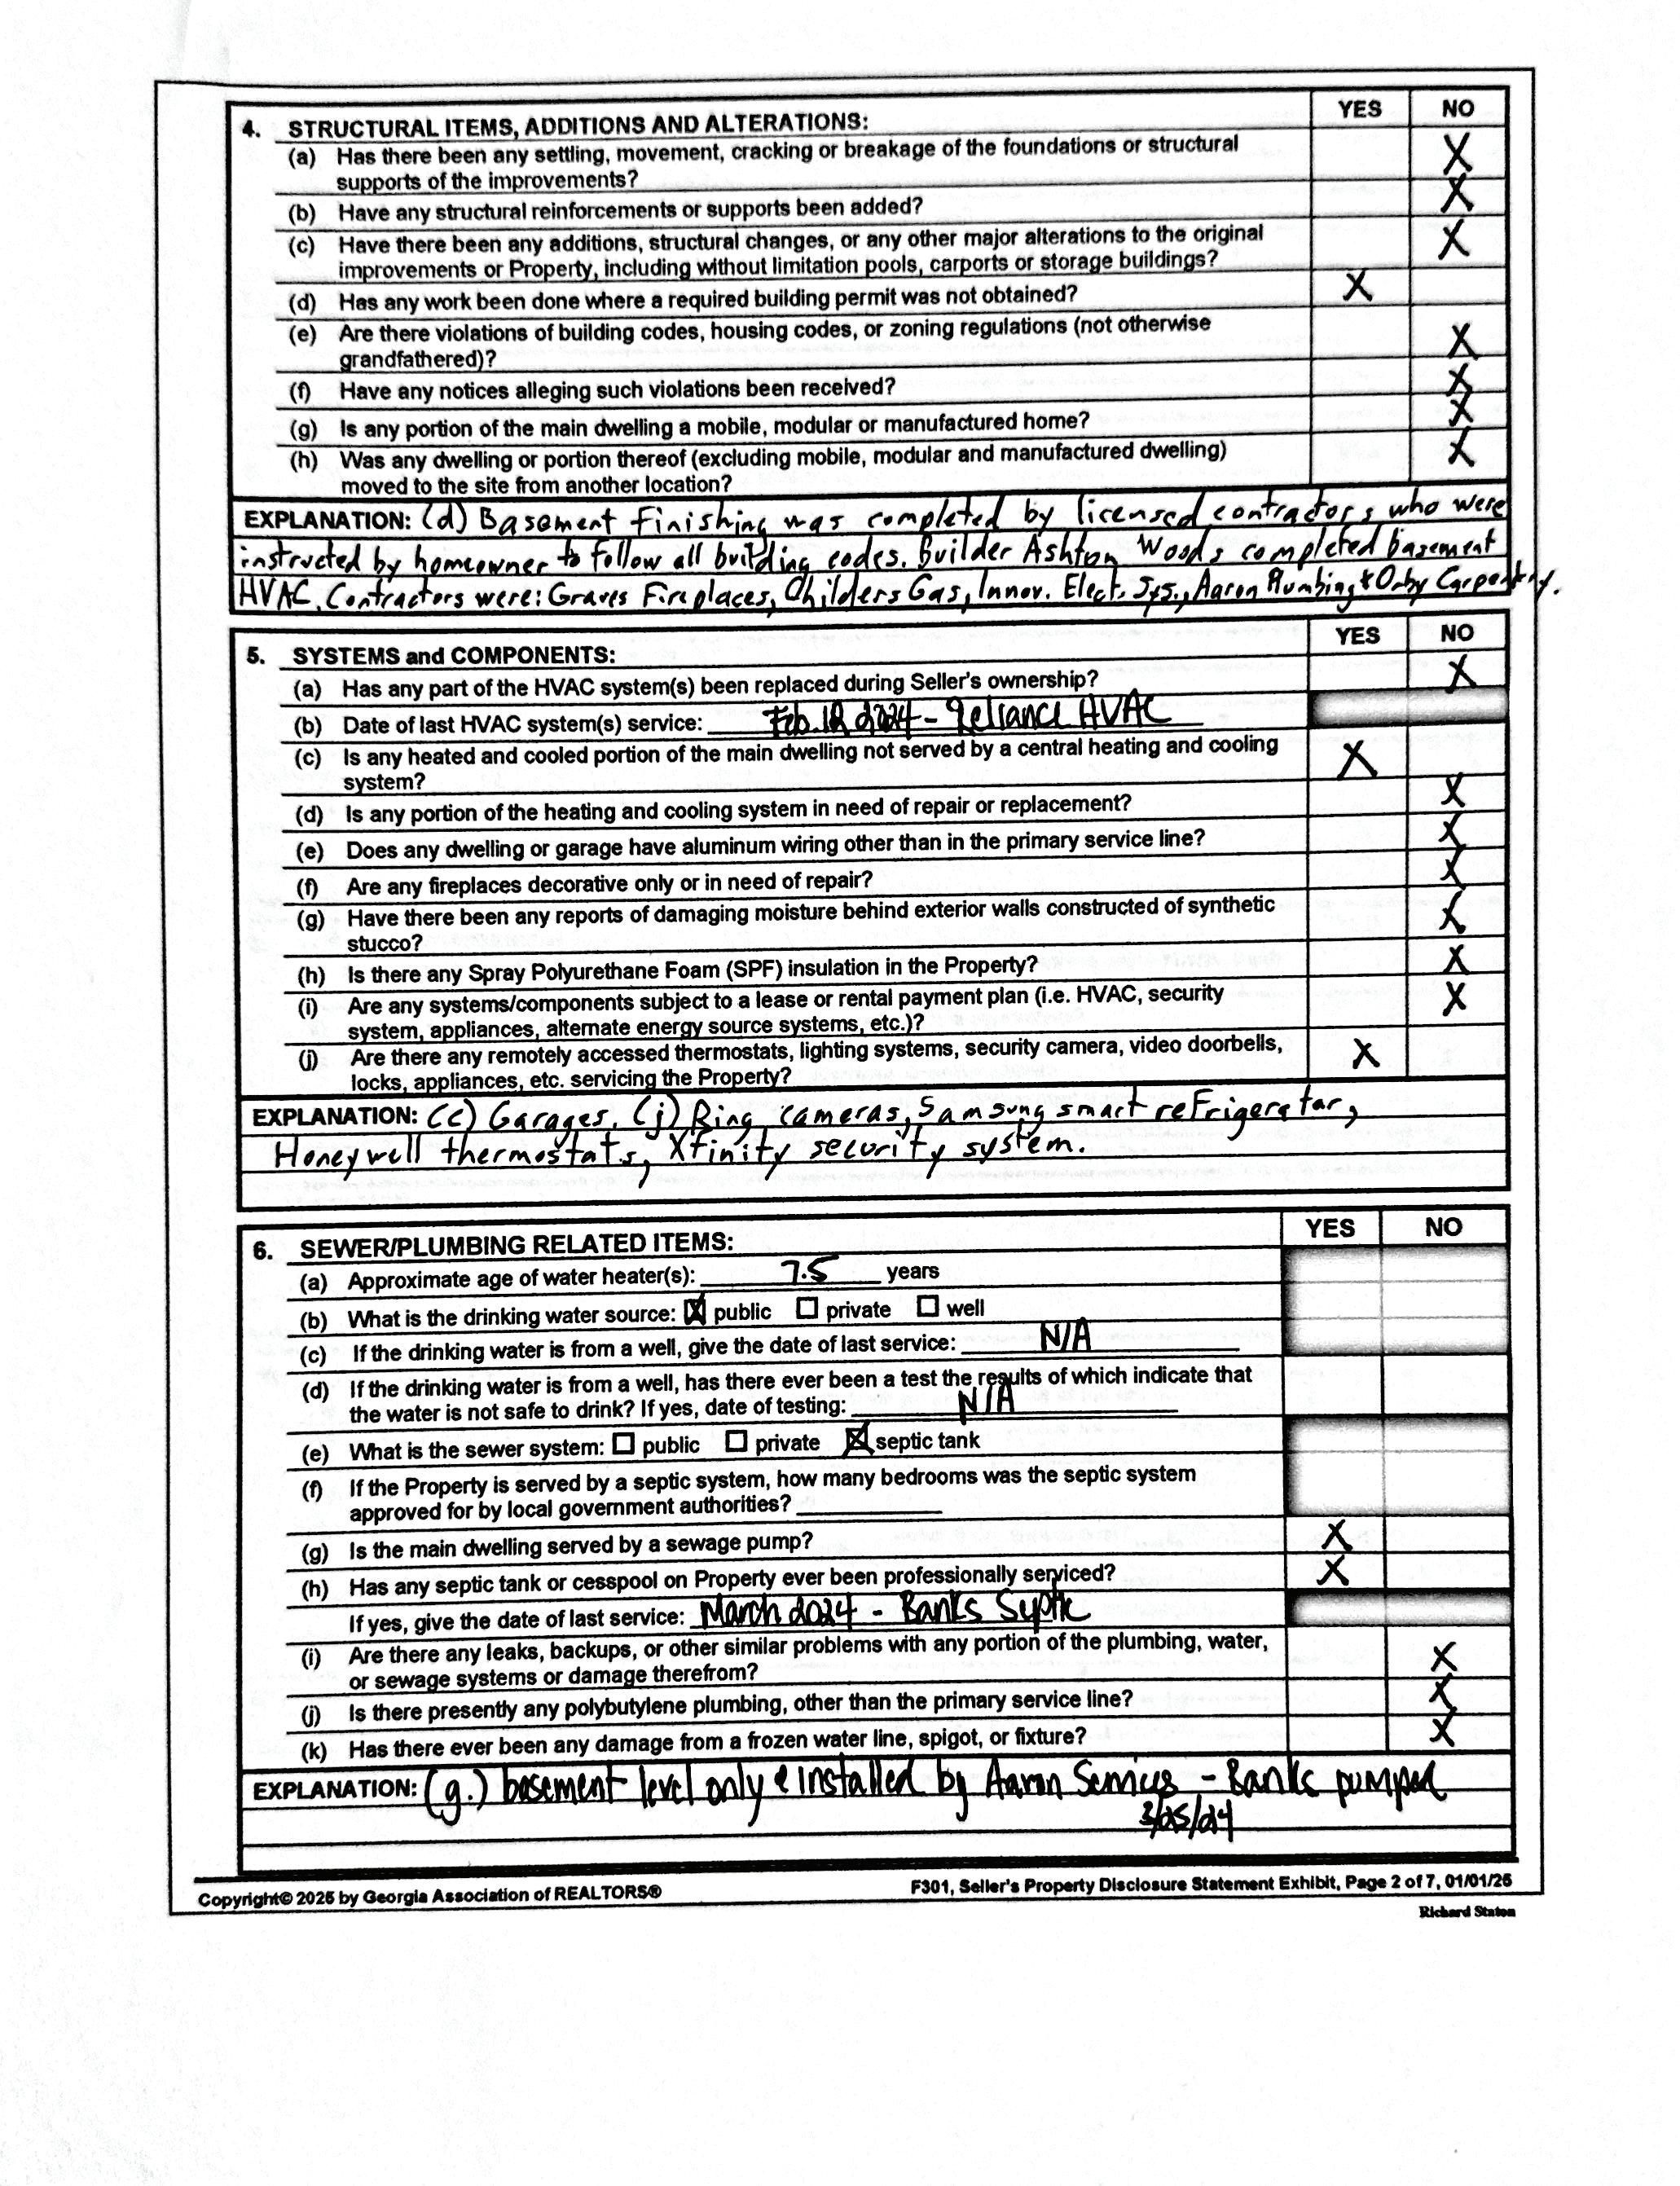 YES NO
4. STRUCTURAL ITEMS, ADDITIONS AND ALTERATIONS:
(a) Has there been any settling, movement, cracking or breakage of the foundations or structural
supports of the improvements? X
(b) Have any structural reinforcements or supports been added? X
(c) Have there been any additions, structural changes, or any other major alterations to the original
improvements or Property, including without limitation pools, carports or storage buildings? X
(d) Has any work been done where a required building permit was not obtained? X
(e) Are there violations of building codes, housing codes, or zoning regulations (not otherwise
grandfathered)? X
(f) Have any notices alleging such violations been received? X
(g) Is any portion of the main dwelling a mobile, modular or manufactured home? X
(h) Was any dwelling or portion thereof (excluding mobile, modular and manufactured dwelling)
moved to the site from another location? X
EXPLANATION: (d) Basement Finishing was completed by licensed contractors who were
instructed by homeowner to follow all building codes. Builder Ashton Woods completed basement
HVAC. Contractors were: Graves Fireplaces, Childers Gas, Innov. Elect. Sys., Aaron Plumbing & Orby Carpentry.
YES NO
5. SYSTEMS and COMPONENTS:
(a) Has any part of the HVAC system(s) been replaced during Seller's ownership? X
(b) Date of last HVAC system(s) service: Feb. 12 2024 - Reliance HVAC
(c) Is any heated and cooled portion of the main dwelling not served by a central heating and cooling
system? X
(d) Is any portion of the heating and cooling system in need of repair or replacement? X
(e) Does any dwelling or garage have aluminum wiring other than in the primary service line? X
(f) Are any fireplaces decorative only or in need of repair? X
(g) Have there been any reports of damaging moisture behind exterior walls constructed of synthetic
stucco? X
(h) Is there any Spray Polyurethane Foam (SPF) insulation in the Property? X
(i) Are any systems/components subject to a lease or rental payment plan (i.e. HVAC, security
system, appliances, alternate energy source systems, etc.)? X
(j) Are there any remotely accessed thermostats, lighting systems, security camera, video doorbells,
locks, appliances, etc. servicing the Property? X
EXPLANATION: (c) Garages, (j) Ring cameras, Samsung smart refrigerator,
Honeywell thermostats, Xfinity security system.
YES NO
6. SEWER/PLUMBING RELATED ITEMS:
(a) Approximate age of water heater(s): 7.5 years
(b) What is the drinking water source: ☒ public ☐ private ☐ well
(c) If the drinking water is from a well, give the date of last service: N/A
(d) If the drinking water is from a well, has there ever been a test the results of which indicate that
the water is not safe to drink? If yes, date of testing: N/A
(e) What is the sewer system: ☐ public ☐ private ☒ septic tank
(f) If the Property is served by a septic system, how many bedrooms was the septic system
approved for by local government authorities?
(g) Is the main dwelling served by a sewage pump? X
(h) Has any septic tank or cesspool on Property ever been professionally serviced? X
If yes, give the date of last service: March 2024 - Banks Septic
(i) Are there any leaks, backups, or other similar problems with any portion of the plumbing, water,
or sewage systems or damage therefrom? X
(j) Is there presently any polybutylene plumbing, other than the primary service line? X
(k) Has there ever been any damage from a frozen water line, spigot, or fixture? X
EXPLANATION: (g.) basement level only & installed by Aaron Services - Banks pumped
3/25/24
Copyright© 2025 by Georgia Association of REALTORS® F301, Seller's Property Disclosure Statement Exhibit, Page 2 of 7, 01/01/25
Richard Staton